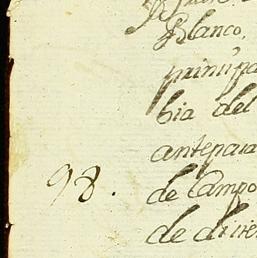 Blanco,
principa
bia del
antepara
98. de Campo
de diver